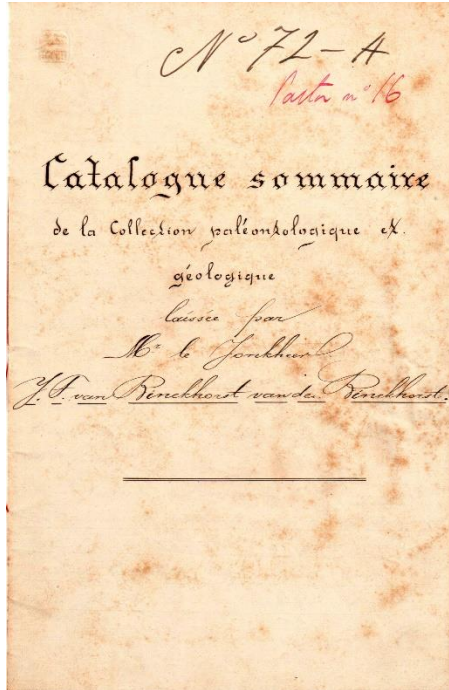 Nº 72 - A
Pasta nº 16
Catalogue sommaire
de la Collection paléontologique et
géologique
laissée par
Mr le Jonkheer
J. T. van Binckhorst van den Binckhorst.